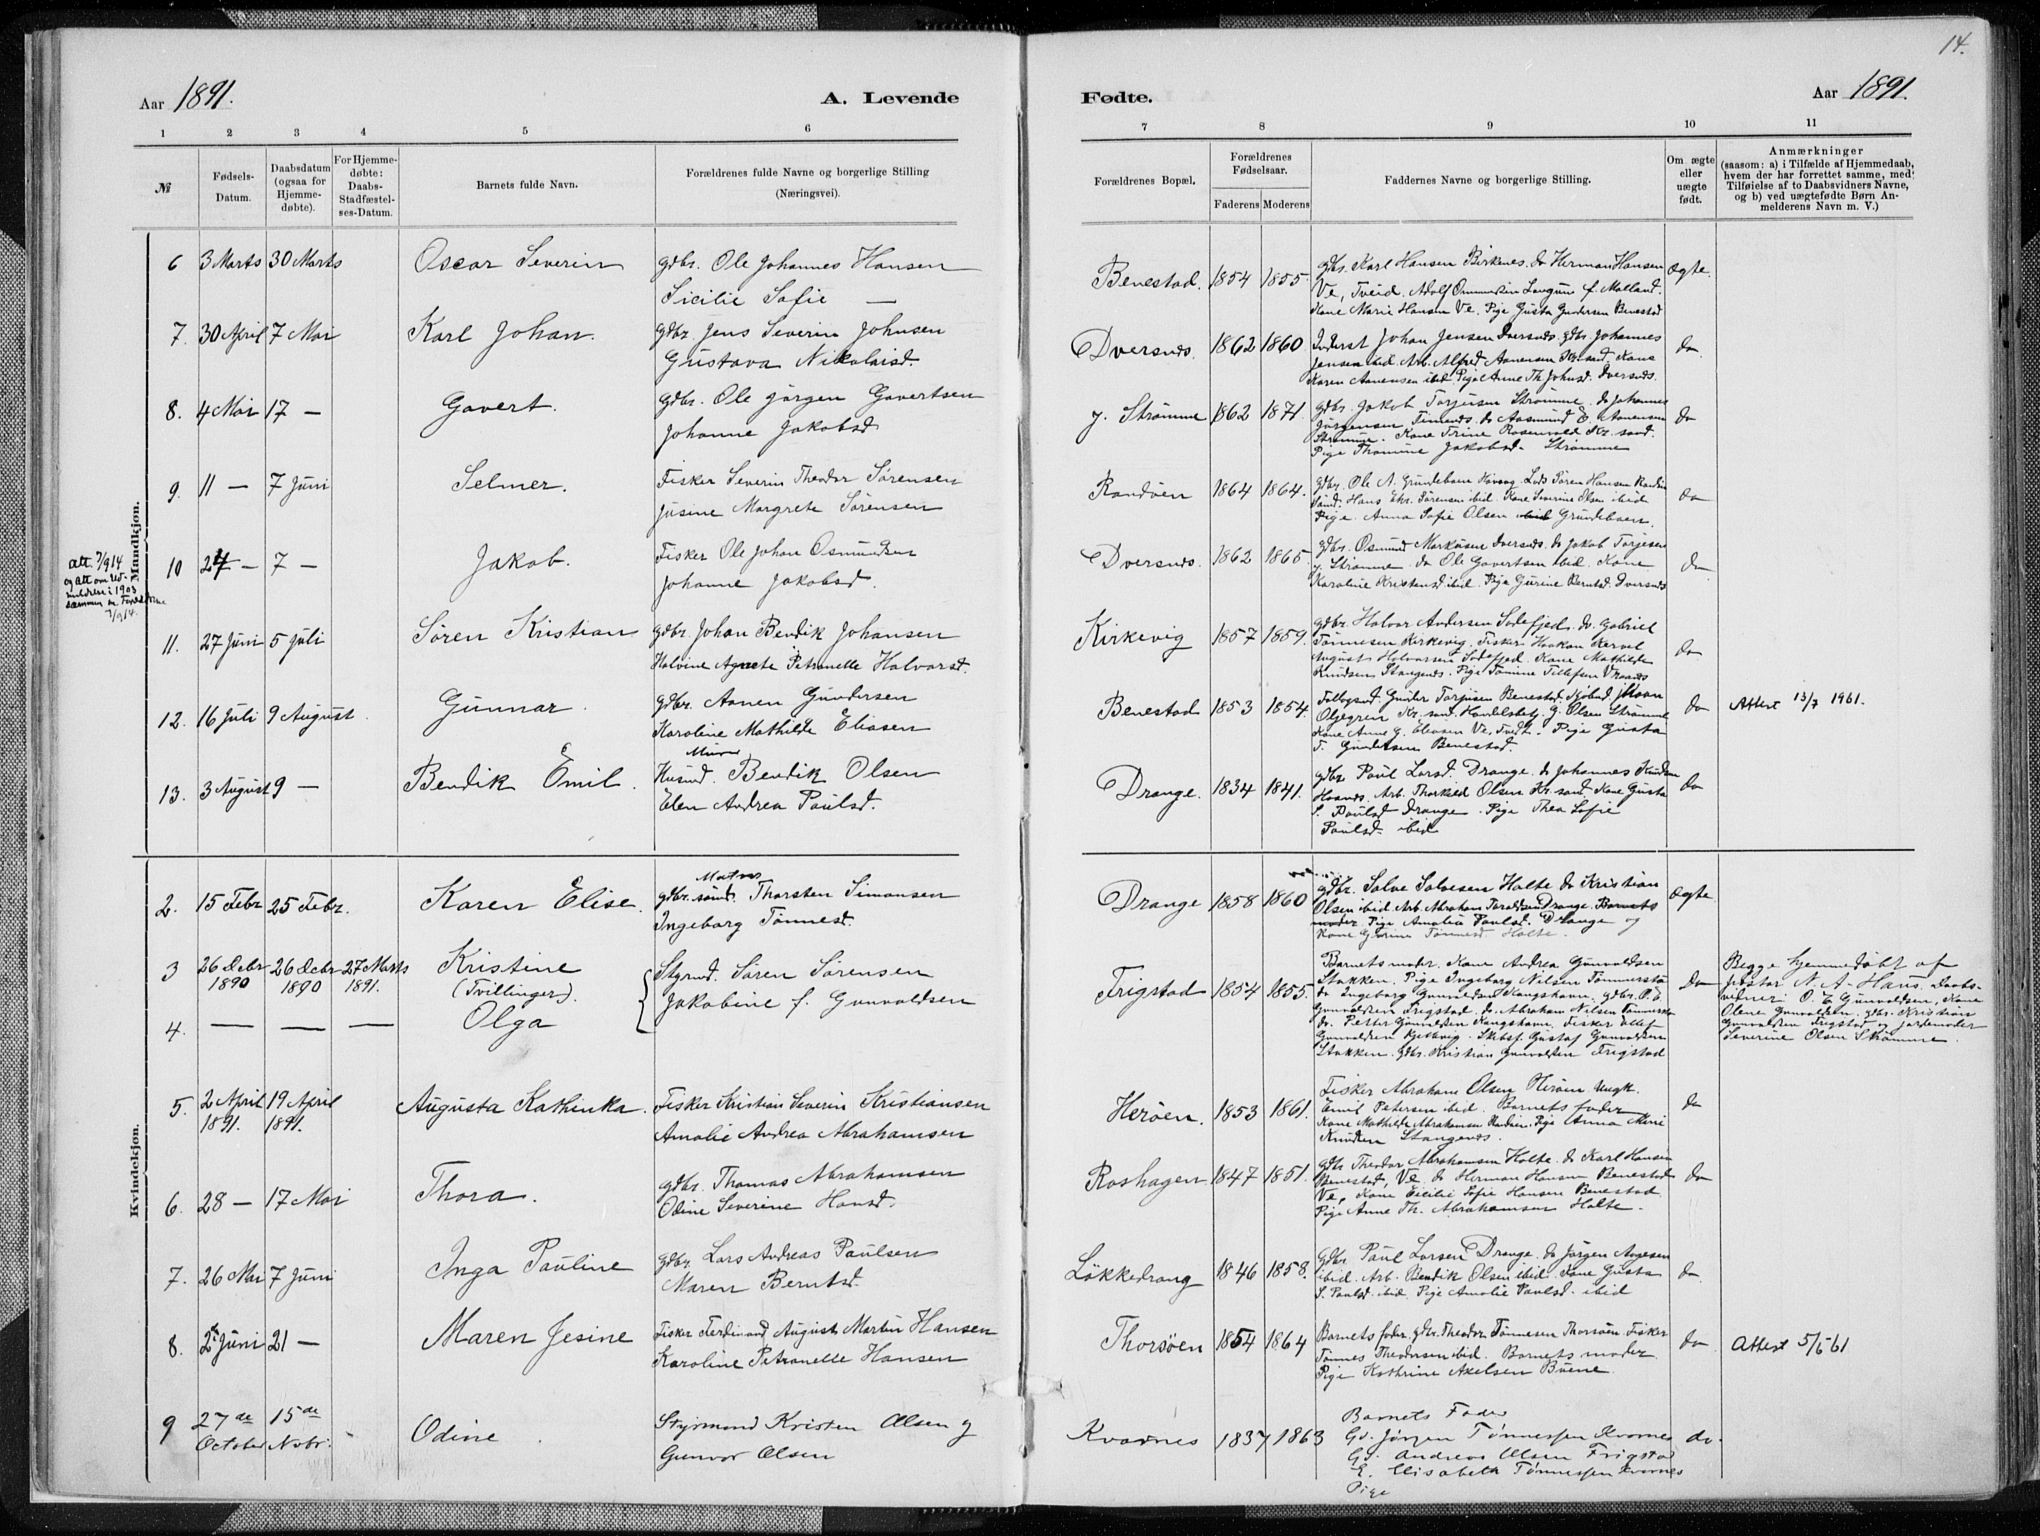 14.
Aar 1891.
A. Levende
Fødte.
Aar 1891.
1 2 3 4 5 6
7 8 9 10 11
№
Fødsels-Datum.
Daabsdatum (ogsaa for Hjemme-døbte).
For Hjemme-døbte: Daabs-Stadfæstel-ses-Datum.
Barnets fulde Navn.
Forældrenes fulde Navne og borgerlige Stilling (Næringsvei).
Forældrenes Bopæl.
Forældrenes Fødselsaar.
Faderens Moderens
Faddernes Navne og borgerlige Stilling.
Om ægte eller uægte født.
Anmærkninger
(saasom: a) i Tilfælde af Hjemmedaab, hvem der har forrettet samme, med Tilføielse af to Daabsvidners Navne, og b) ved uægtefødte Børn Anmelderens Navn m. V.)
Mandkjøn.
6 3 Marts 30 Marts Oscar Severin gdbr. Ole Johannes Hansen
Sicilie Sofie —
Benestad. 1854 1855. gdbr. Karl Hansen Birkenes. do Herman Hansen Ægte.
Ve, Tveid. Adolf
Kone Marie Hansen Ve. Pige Gusta Gundersen Benestad
7. 30 April 7 Mai Karl Johan. gdbr. Jens Severin Johnsen
Gustava Nikolaisd.
Dversnes. 1862 1860 Inderst Johan Jensen Dversnes. gdbr Johannes do
Jensen ibid. Arb. Alfred Aanensen Kr.sand. Kone
Karen Aanensen ibid. Pige Anne Th. Johnsd. Dversnes.
8. 4 Mai 17 — Govert. gdbr. Ole Jørgen Govertsen
Johanne Jakobsd
y. Strømme 1862 1871. gdbr. Jakob Torjusen Strømme. do Johannes do
Jørgensen Timenes. do Aasmund E. Aanensen
Strømme. Kone Trine Rosenvold Kr. sand.
Pige Thomine Jakobsd. Strømme
9. 11 — 7 Juni Selmer. Fisker Severin Theodor Sørensen
Josine Margrete Sørensen
Randøen 1864 1864. gdbr. Ole A. Grundebaen Høvaag. Lods Søren Hansen do
Hans Chr. Sørensen ibid. Kone Severine Olsen ibid
Pige. Anna Sofie Olsen Grundebaen.
Att. 7/9 14
og att om Ud-
10 24 — 7 — Jakob. Fisker Ole Johan Osmundsen
Johanne Jakobsd.
Dversnes. 1862 1865. gdbr. Osmund Markusen Dversnes. do Jakob Torjesen do
y. Strømme. do Ole Govertsen ibid. Kone
Karoline Kristensd ibid. Pige Gurine Berntsd. Dversnes
11. 27 Juni 5 Juli Søren Kristian gdbr. Johan Bendik Johansen
Halvine Agnete Petronelle Halvorsd.
Kirkevig 1857 1859. gdbr. Halvor Andersen Sodefjed. do. Gabriel do
Tønnesen Kirkevig. Fisker Haakon
August Halvorsen Sodefjed. Kone Mathilde
Knudsen Stangenes. Pige Tomine Tellefsen Vraanes
12. 16 Juli 9 August. Gunnar. gdbr. Aanen Gundersen
Karoline Mathilde Eliasen
Benestad 1853 1854. Gunder Torjusen Benestad. Johan do Attest 13/7 1961.
Oljegren Kr. sand. Handelsbetj. G. Olsen Strømme
Kone Anne G. Eliasen Ve, Tveid. Pige Gusta
T. Gundersen Benestad.
13. 3 August 9 — Bendik Emil. Husmd. Murer Bendik Olsen
Elen Andrea Paulsd.
Drange. 1834 1841. gdbr Paul Larsd. Drange. do Johannes Knudsen do
Arb. Thorkild Olsen Kr. sand. Kone Gusta
S. Paulsd Drange. Pige Thea Sofie
Paulsd. ibid
Kvindekjøn.
2. 15 Febr 25 Febr. Karen Elise. gdbr. sønd. Matros Thorsten Simonsen
Ingeborg Tønnesd.
Drange 1858 1860 gdbr. Salve Salvesen Holte do Kristian Ægte.
Olsen ibid. Arb. Abraham Drange. Barnets
moder. Pige Amalia Paulsd. Drange og
Kone Tønnesd Holte.
3 26 Decbr 1890 26 Decbr 1890 27 Marts 1891. Kristine
(Tvillinger).
Styrmd. Søren Sørensen
Jakobine f. Gunvaldsen
4. — — — Olga
Frigstad 1854 1855. Barnets moder. Kone Andrea Gunvaldsen do
Stokken. Pige Ingeborg Nilsen
do Ingeborg Gunvaldsen Kongshavn. gdbr. O. E.
Gunvaldsen Frigstad. do. Abraham Nilsen
do. Petter Gunvaldsen Kongshavn. Fisker Ellef
Gunvaldsen Kjelkvig. Skibsf. Gustaf Gunvaldsen
Stokken. gdbr. Kristian Gunvaldsen Frigstad
Begge hjemmedøbt af
pastor N. A. Hans. Daabs-
vidner: O. E. Gunvaldsen, Kone
Olene Gunvaldsen, gdbr. Kristian
Gunvaldsen Frigstad og jordemoder
Severine Olsen Strømme.
5. 2 April 1891. 19 April 1891. Augusta Kathinka. Fisker Kristian Severin Kristiansen
Amalie Andrea Abrahamsen
Herøen. 1853 1861. Fisker Abraham Olsen Herøen Ungk. do
Emil Petersen ibid. Barnets fader
Kone Mathilde Abrahamsen Randøen. Pige Anna Marie
Knudsen Stangenes.
6. 28 — 17 Mai Thora. gdbr. Thomas Abrahamsen
Odine Severine Hansd.
Roshagen 1847 1851. gdbr Theodor Abrahamsen Holte. do Karl Hansen do
Benestad, Ve. do Herman Hansen Benestad
Ve, Kone Cicilie Sofie Hansen Benestad.
Pige Anne Th. Abrahamsen Holte.
7. 26 Mai 7 Juni Inga Pauline gdbr. Lars Andreas Paulsen
Maren Berntsd.
Løkkedrang 1846 1858. gdbr. Paul Larsen Drange. do Jørgen Aagesen do
ibid. Arb. Bendik Olsen ibid. Kone Gusta
S. Paulsd. ibid. Pige Amalie Paulsd. ibid
8. 2 Juni 21 — Maren Jesine Fisker Ferdinand August Martin Hansen
Karoline Petronelle Hansen
Thorsøen 1854 1864 Barnets fader. gdbr. Theodor Tønnesen Thorsøen. Fisker do Attest 5/5 61
Tønnes Theodorsen ibid. Barnets moder.
Pige Kathrine Axelsen Buene.
9 27de October 15de Nvbr. Odine. Styrmand Kristen Olsen og
Gunvor Olsen
Kvarnes 1837 1863 Barnets Fader do.
Gd. Jørgen Tønnessen Kvarnes
Gd. Andreas Olsen Frigstad
E. Elisabeth Tønnessen Kvarnes
Pige